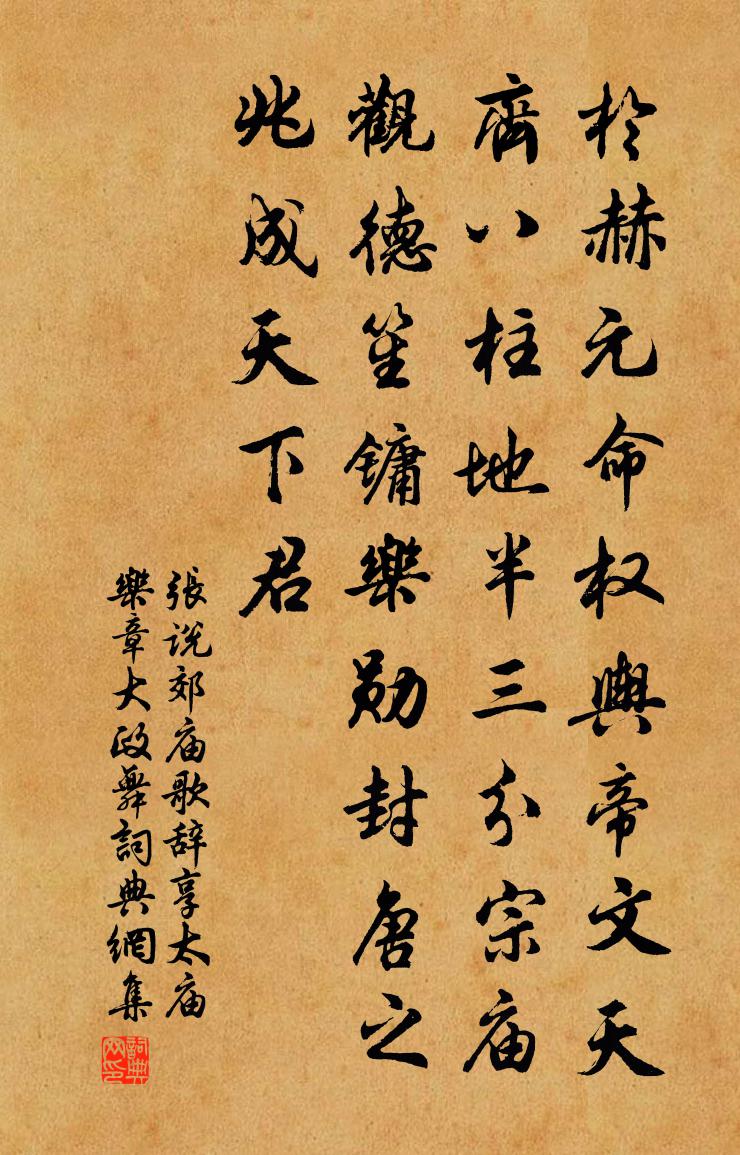 於赫元命权輿帝文天
齊八柱地半三分宗庙
觀德笙鏞樂勛封唐之
兆成天下君
張说郊庙歌辞享太庙
樂章大政舞詞典網集
詞典网印